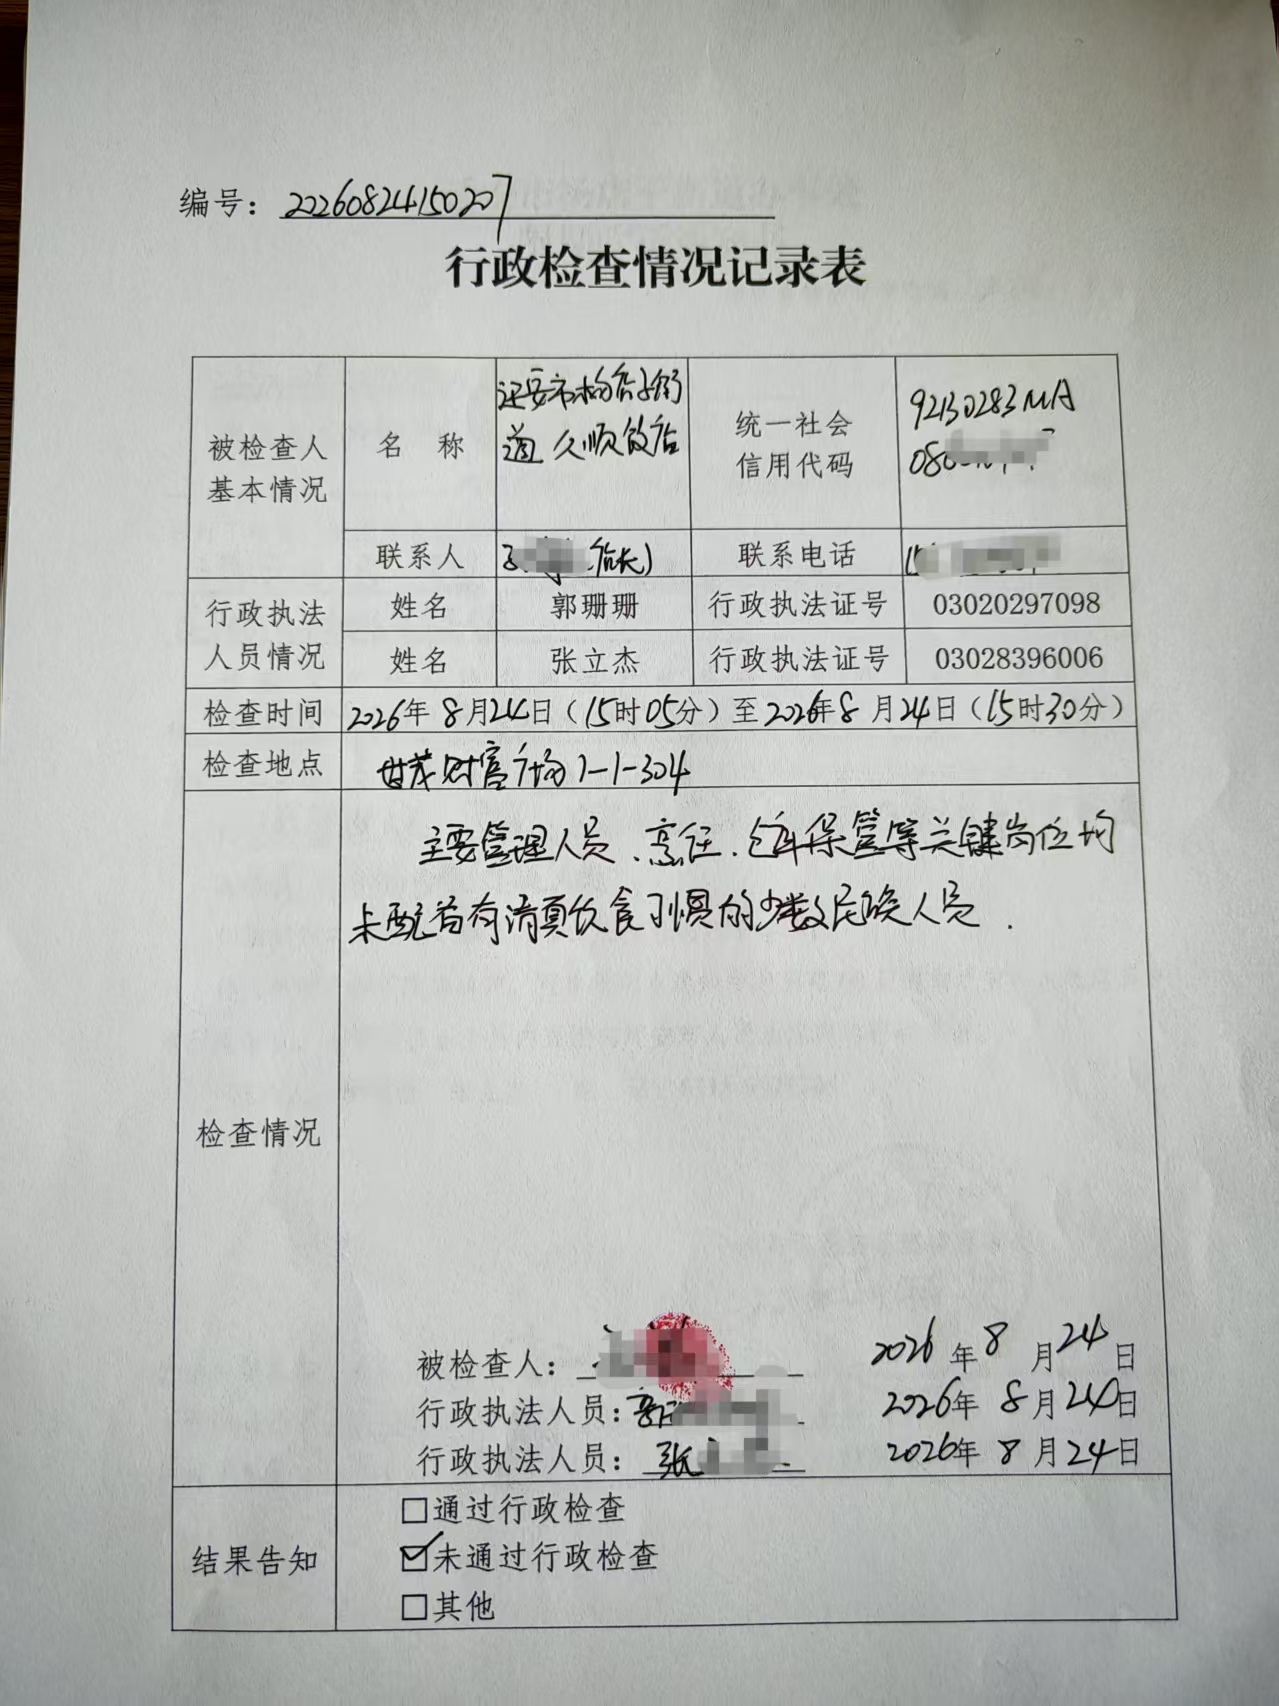 编号：20260824150207
行政检查情况记录表
被检查人
基本情况
名 称
迁安市杨店子街
道久顺饭店
统一社会
信用代码
92130283MA
08
联系人
（店长）
联系电话
行政执法
人员情况
姓名
郭珊珊
行政执法证号
03020297098
姓名
张立杰
行政执法证号
03028396006
检查时间
2026年8月24日（15时05分）至2026年8月24日（15时30分）
检查地点
世茂财富广场1-1-304
检查情况
主要管理人员、烹饪、仓库保管等关键岗位均
未配备有清真饮食习惯的少数民族人员.
被检查人：
2026年8月24日
行政执法人员：
2026年8月24日
行政执法人员：张
2026年8月24日
结果告知
□通过行政检查
☑未通过行政检查
□其他